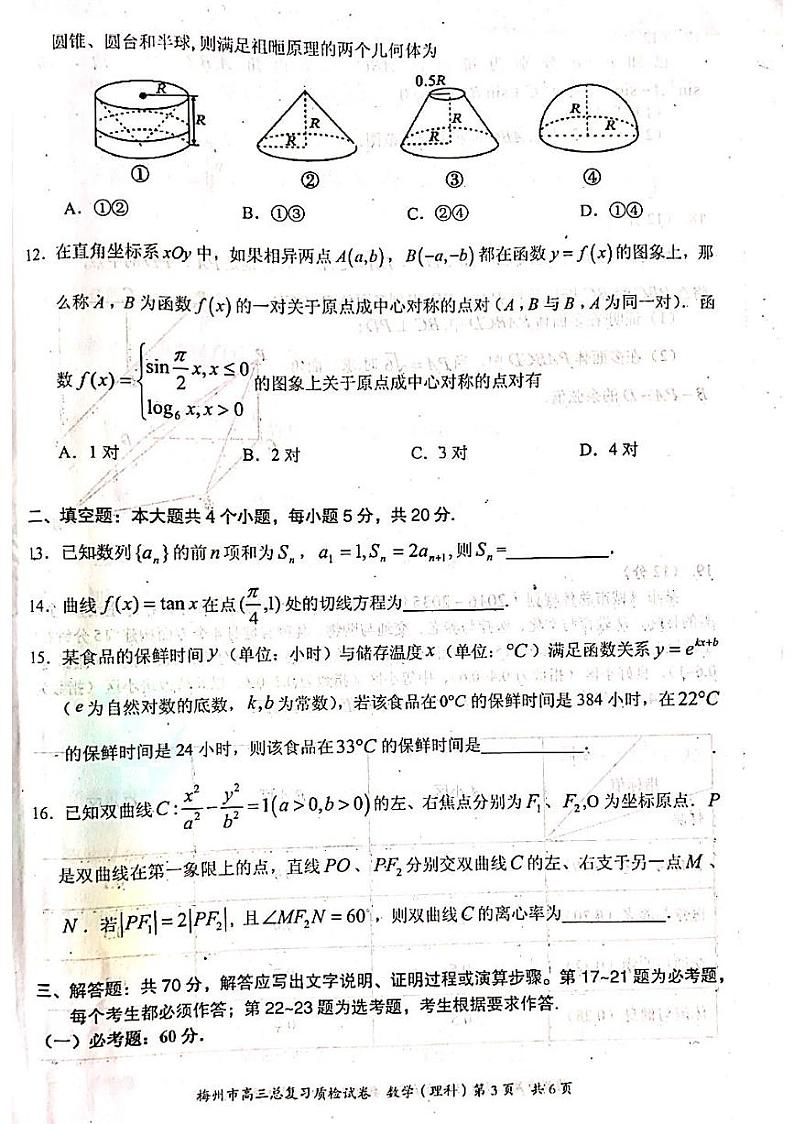 圆锥、圆台和半球,则满足祖暅原理的两个几何体为
R R R R 0.5R R R R R
① ② ③ ④
A. ①② B. ①③ C. ②④ D. ①④
12. 在直角坐标系xOy中，如果相异两点A(a,b)，B(-a,-b)都在函数y=f(x)的图象上，那
么称A，B为函数f(x)的一对关于原点成中心对称的点对(A,B与B,A为同一对). 函
数f(x)={sin π/2 x, x≤0; log₆ x, x>0 的图象上关于原点成中心对称的点对有
A. 1对 B. 2对 C. 3对 D. 4对
二、填空题：本大题共4个小题，每小题5分，共20分.
13. 已知数列{aₙ}的前n项和为Sₙ，a₁=1,Sₙ=2aₙ₊₁,则Sₙ=__________.
14. 曲线f(x)=tan x在点(π/4,1)处的切线方程为__________.
15. 某食品的保鲜时间y（单位：小时）与储存温度x（单位：℃）满足函数关系y=e^(kx+b)
（e为自然对数的底数，k,b为常数），若该食品在0℃的保鲜时间是384小时，在22℃
的保鲜时间是24小时，则该食品在33℃的保鲜时间是__________.
16. 已知双曲线C:x²/a²-y²/b²=1(a>0,b>0)的左、右焦点分别为F₁、F₂,O为坐标原点. P
是双曲线在第一象限上的点，直线PO、PF₂分别交双曲线C的左、右支于另一点M、
N. 若|PF₁|=2|PF₂|，且∠MF₂N=60°，则双曲线C的离心率为__________.
三、解答题：共70分，解答应写出文字说明、证明过程或演算步骤。第17~21题为必考题，
每个考生都必须作答；第22~23题为选考题，考生根据要求作答.
（一）必考题：60分.
梅州市高三总复习质检试卷 数学（理科）第3页 共6页